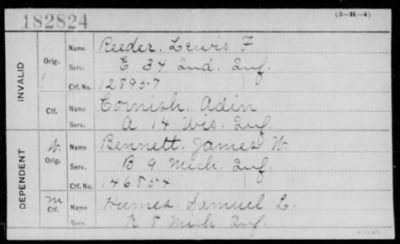 182824
(3—H—4)
INVALID
Orig.
Name Reeder, Lewis F
Serv. E 34 Ind. Inf.
Ctf. No. 128957
Ctf.
Name Cornish, Adin
Serv. A 14 Wis. Inf
DEPENDENT
W. Orig.
Name Bennett, James W.
Serv. B 9 Mich. Inf.
Ctf. No. 146854
M Ctf.
Name Humes, Samuel L.
Serv. K 8 Mich Inf.